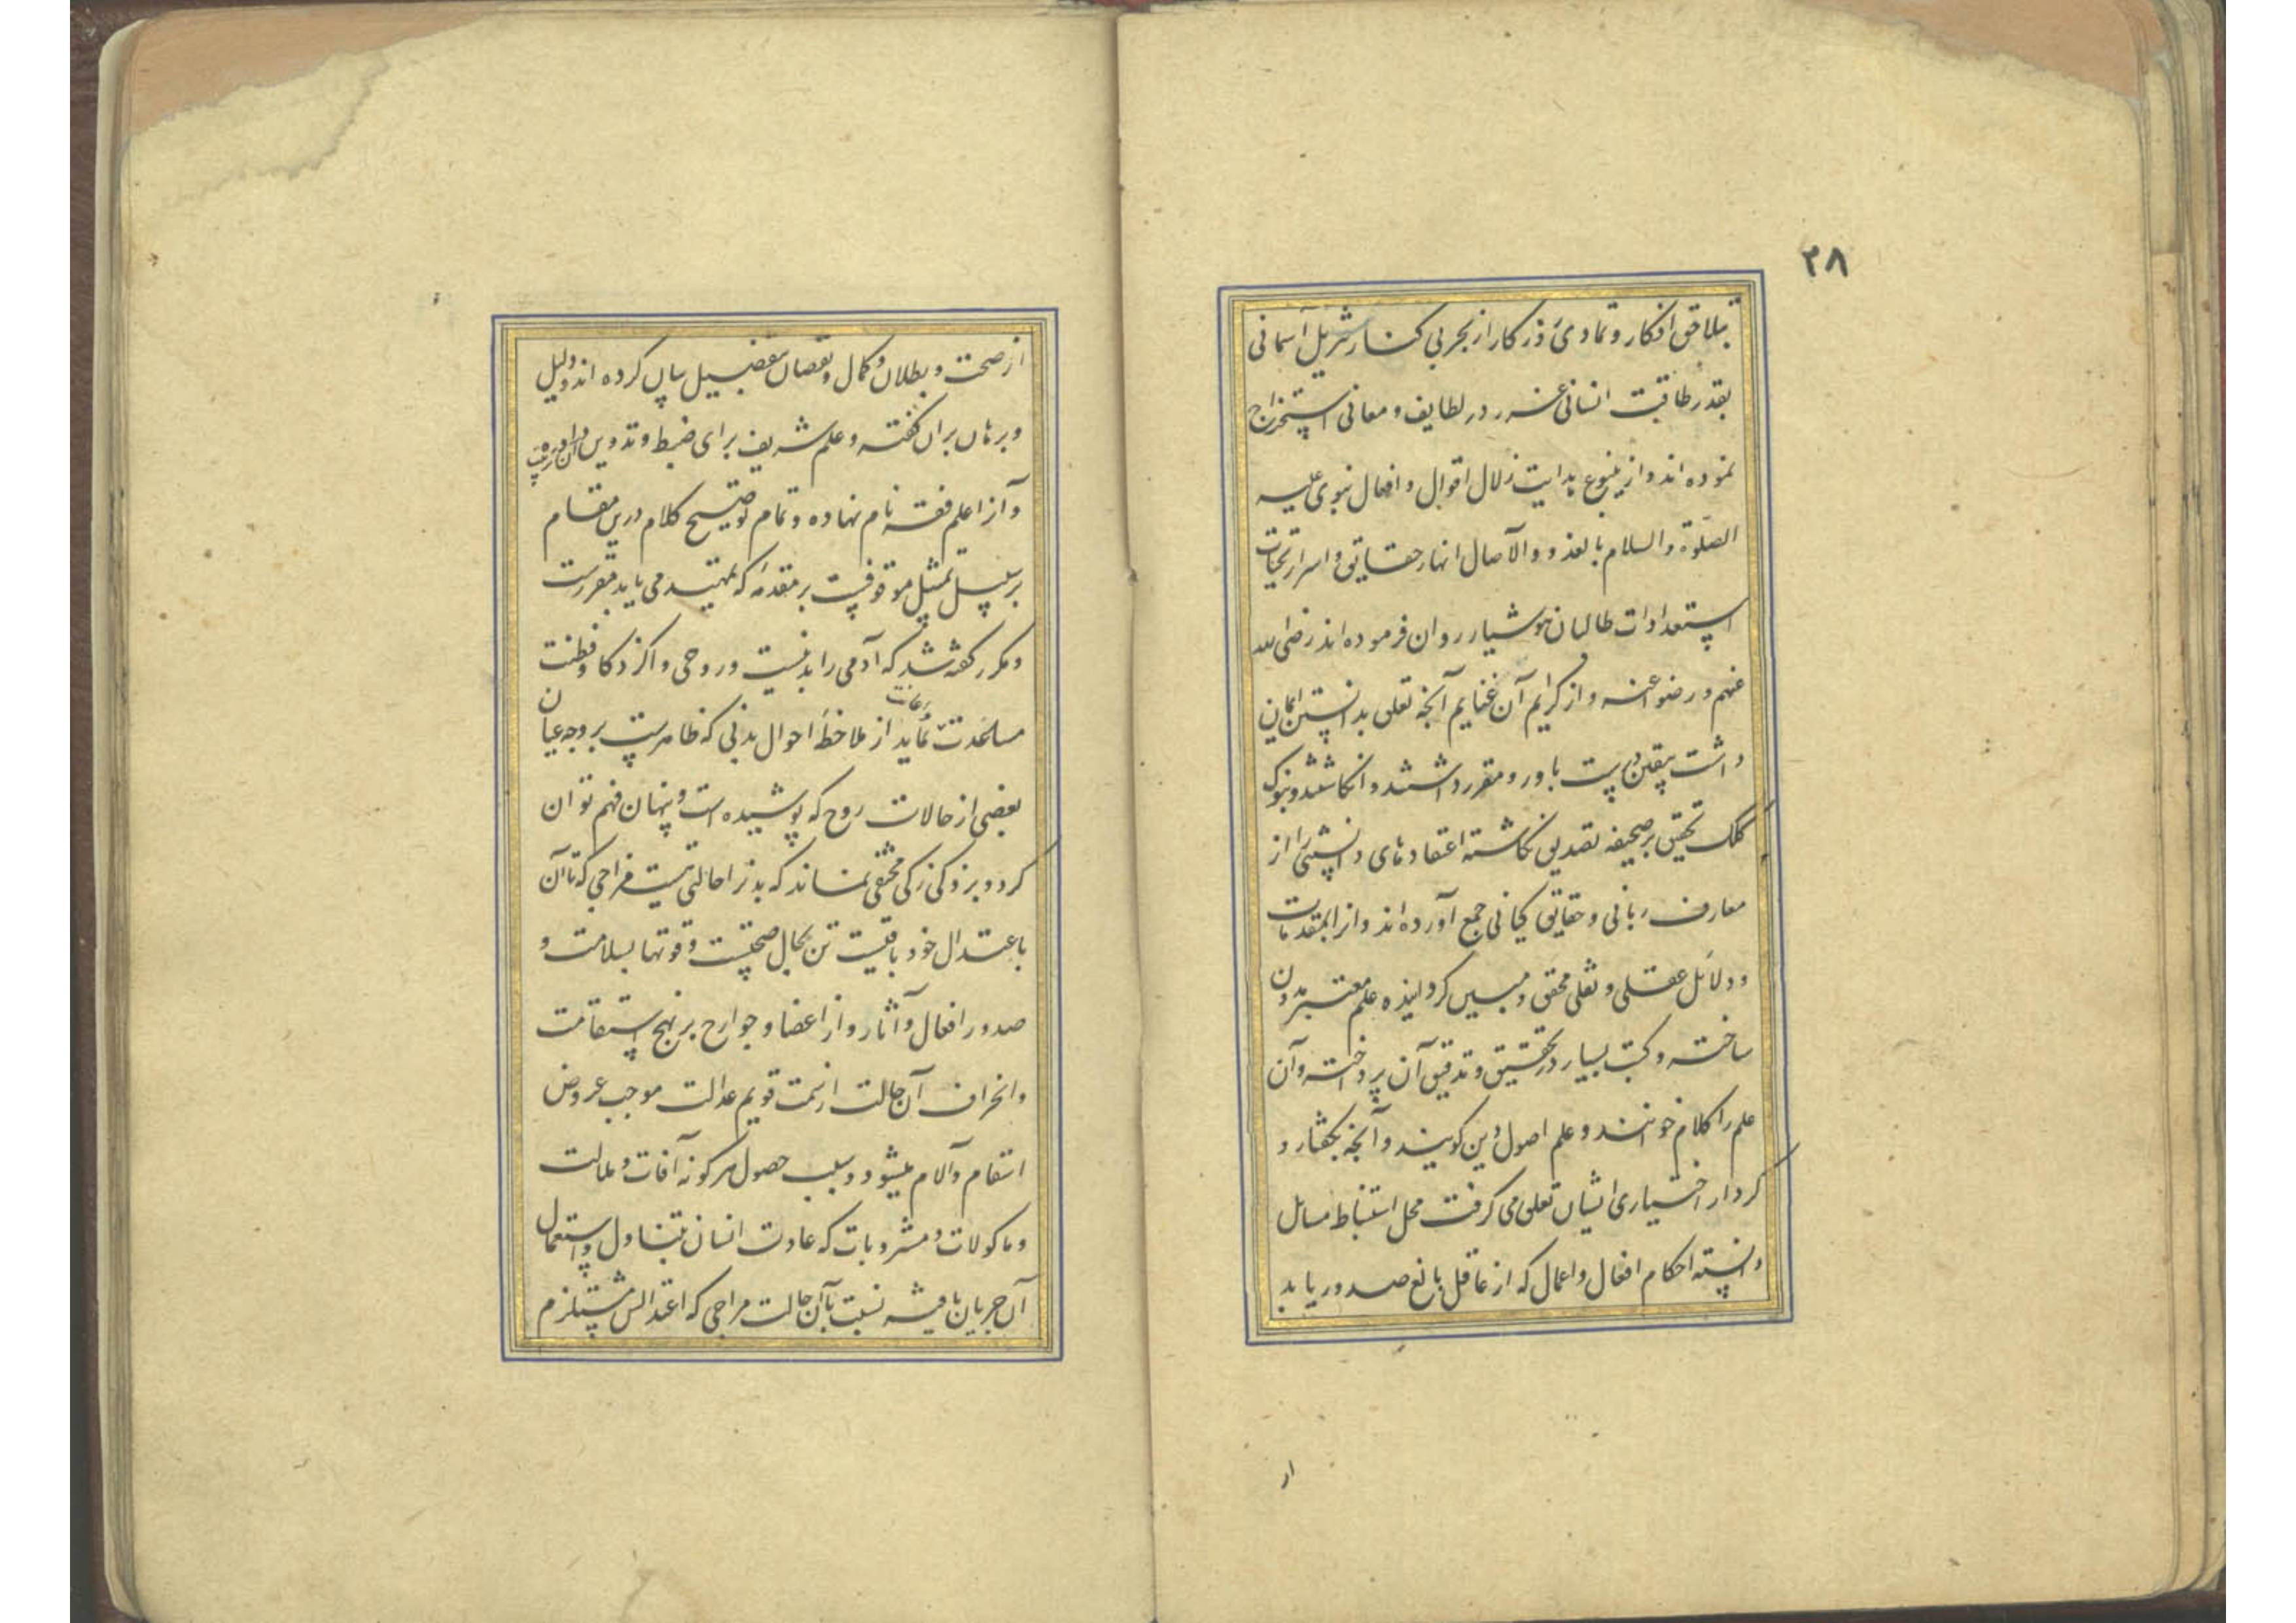 ۳۸
بتلاحق افکار و تمادی اذکار از بحر بی کنار تنزیل آسمانی
بقدر طاقت انسانی غرر درر لطایف و معانی استخراج
نموده اند و از ینبوع هدایت زلال اقوال و افعال نبوی علیه
الصلوة والسلام بالغدو والآصال انهار حقایق و اسرار تحیات
استعدادات طالبان هوشیار روان فرموده اند رضی الله
عنهم و رضوا عنه و از کرایم آن غنایم آنچه تعلق بدانستن ایمان
داشت بیقین درست باور و مقرر داشتند و انکاشتند و بنوک
کلک تحقیق بر صحیفه تصدیق نکاشته اعتقادهای دانستنی را از
معارف ربانی و حقایق کیانی جمع آورده اند و انرا بمقدمات
و دلائل عقلی و نقلی محقق و مبین کردانیده علم معتبر مدون
ساخته و کتب بسیار در تحقیق و تدقیق آن پرداخته و آن
علم را کلام خوانند و علم اصول دین کویند و آنچه بکفتار و
کردار اختیاری ایشان تعلق می کرفت محل استنباط مسائل
دانسته احکام افعال و اعمال که از عاقل بالغ صدور یابد
از
از صحت و بطلان و کمال و نقصان بتفصیل بیان کرده اند و دلیل
و برهان بران کفته و علم شریف برای ضبط و تدوین آن
و آنرا علم فقه نام نهاده و تمام توضیح کلام درین مقام
بر سبیل تمثیل موقوفست بر مقدمه که تمهید می باید مقررست
و مکرر کفته شد که آدمی را بدنیست و روحی و اکر ذکا و فطنت
مساعدت نماید از ملاحظه احوال بدنی که ظاهرست بر وجه عیان
بعضی از حالات روح که پوشیده است و پنهان فهم توان
کرد و بر ذکی زکی مختفی نماند که بدنرا حالتی هست مزاجی که تا آن
باعتدال خود باقیست تن بحال صحتست و قوتها بسلامت و
صدور افعال و آثار و از اعضا و جوارح بر نهج استقامت
و انحراف آن حالت از سمت قویم عدالت موجب عروض
اسقام و آلام میشود و سبب حصول هر کونه آفات و علالت
و ماکولات و مشروبات که عادت انسان بتناول و استعمال
آن جریان یافته نسبت با آن حالت مزاجی که اعتدالش مستلزم